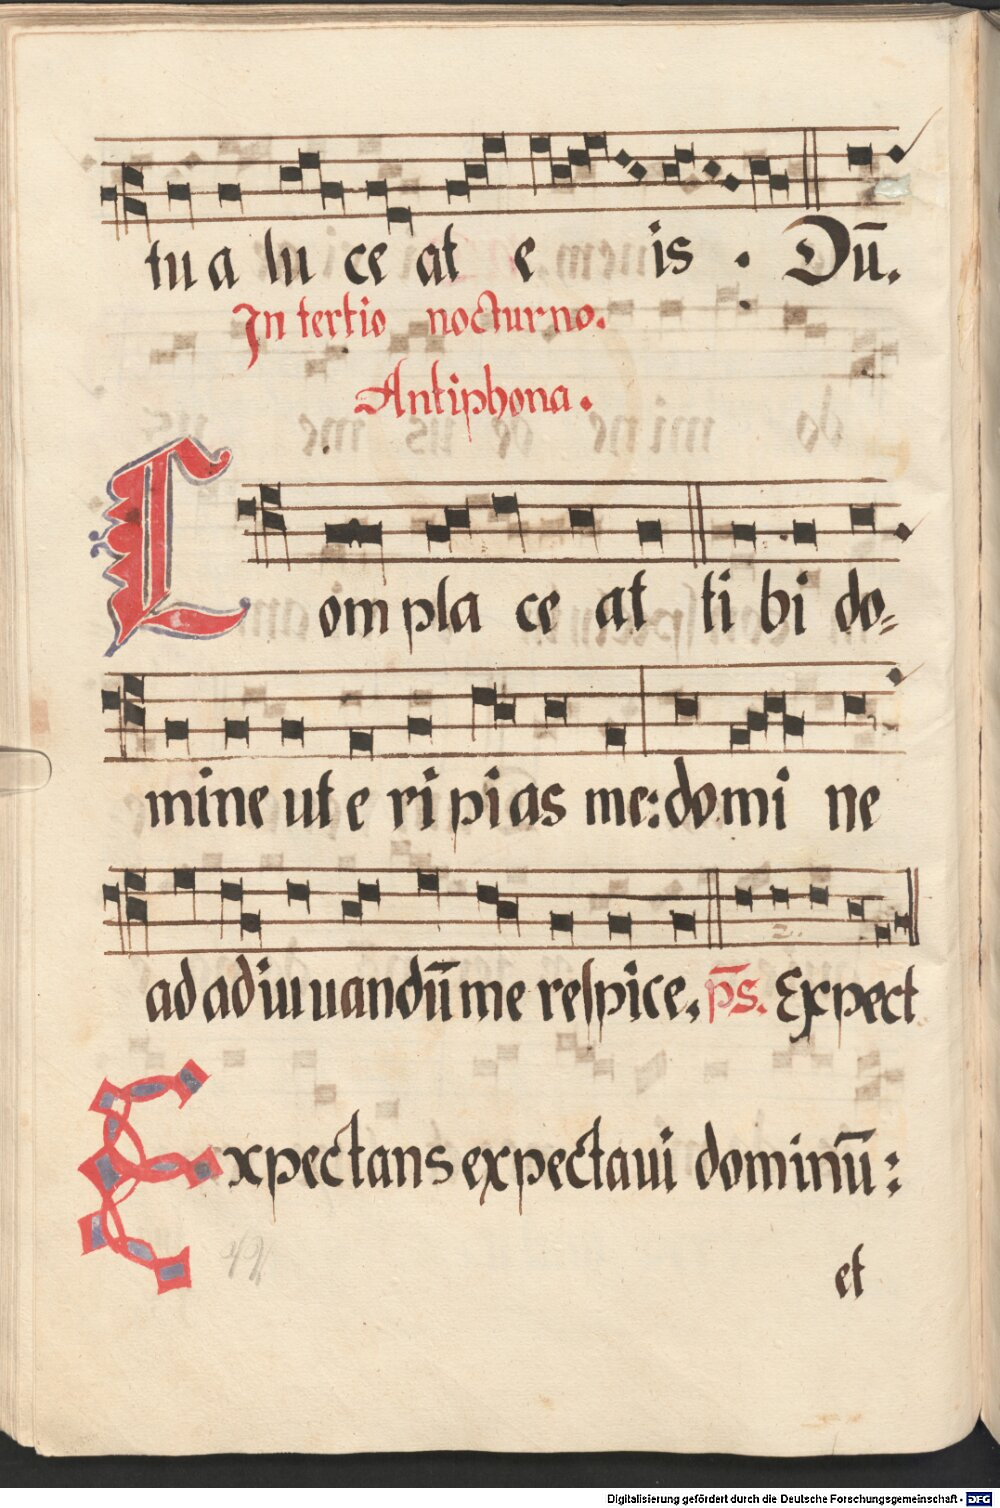 tu a lu ce at e is . Dū.
In tertio nocturno.
Antiphona.
Com pla ce at ti bi do=
mine ut e ri pi as me: do mi ne
ad adiuuandū me respice. p̄s. Expect
Expectans expectaui dominū:
et
Digitalisierung gefördert durch die Deutsche Forschungsgemeinschaft - DFG